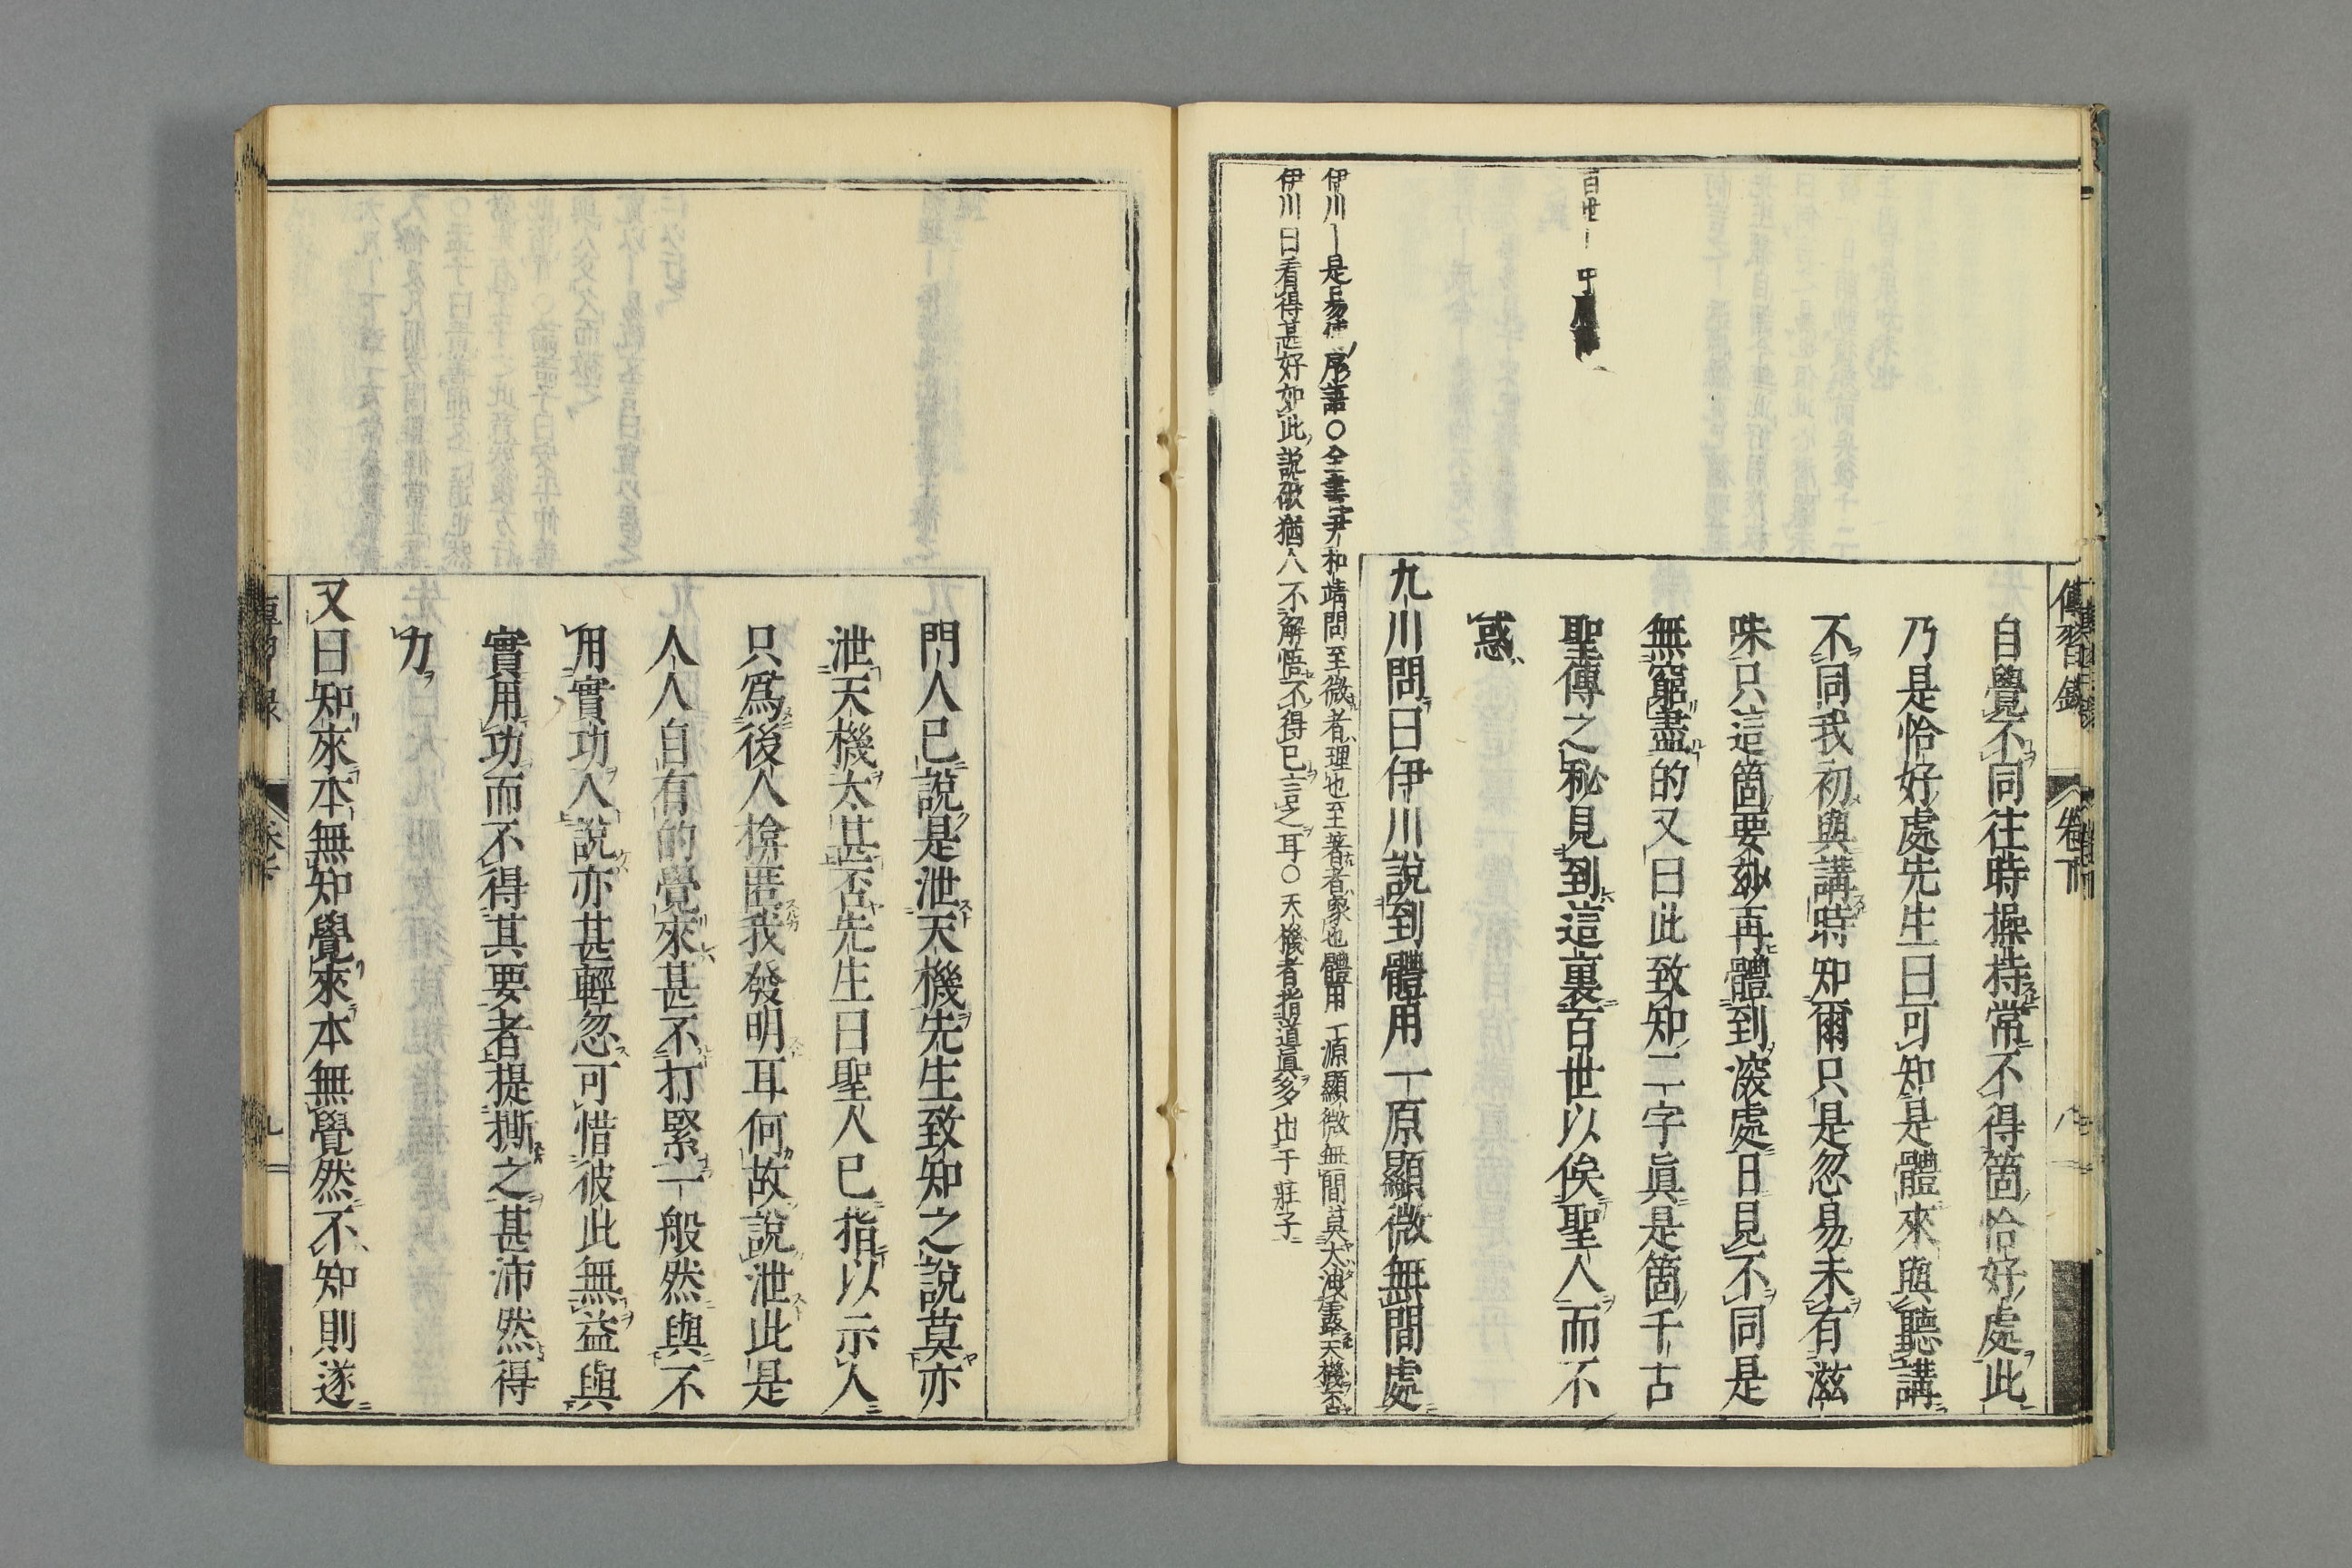 傳習錄 卷下
自覺不同往時操持常不得箇恰好處此
乃是恰好處先生曰可知是體來與聽講
不同我初與講時知爾只是忽易未有滋
味只這箇要妙再體到深處日見不同是
無窮盡的又曰此致知二字眞是箇千古
聖傳之秘見到這裏百世以俟聖人而不
惑
百世
中庸
九川問曰伊川說到體用一原顯微無間處
伊川一是易傳序語〇全書尹和靖問至微者理也至著者象也體用一源顯微無間莫太洩露天機否
伊川曰看得甚好如此說破猶人不解悟不得已言之耳〇天機者指道眞多出于莊子
門人已說是泄天機先生致知之說莫亦
泄天機太甚否先生曰聖人已指以示人
只爲後人揜匿我發明耳何故說泄此是
人人自有的覺來甚不打緊一般然與不
用實功人說亦甚輕忽可惜彼此無益與
實用功而不得其要者提撕之甚沛然得
力
又曰知來本無知覺來本無覺然不知則遂